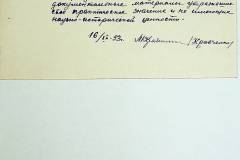 документальные материалы утратившие
своё практическое значение и не имеющие
научно-исторической ценности.
16/ 53г. /Кравченко/